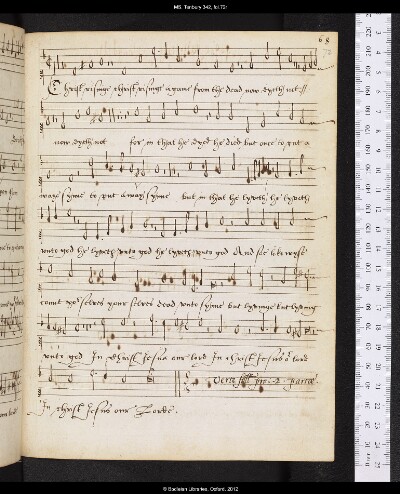 MS. Tenbury 342, fol.70r
68
Christ risinge christ risinge againe from the dead now dyeth not
now dyeth not for in that he dyed he died but once to put a
waye synne to put awaye synne but in that he lyveth he lyveth
unto god he lyveth unto god he lyveth unto god And soe likewyse
count your selves your selves dead unto synne but lyvinge but lyving
unto god In christ Jesus our lord In christ Jesus lord
In christ Jesus our Lorde.
© Bodleian Libraries, Oxford, 2012